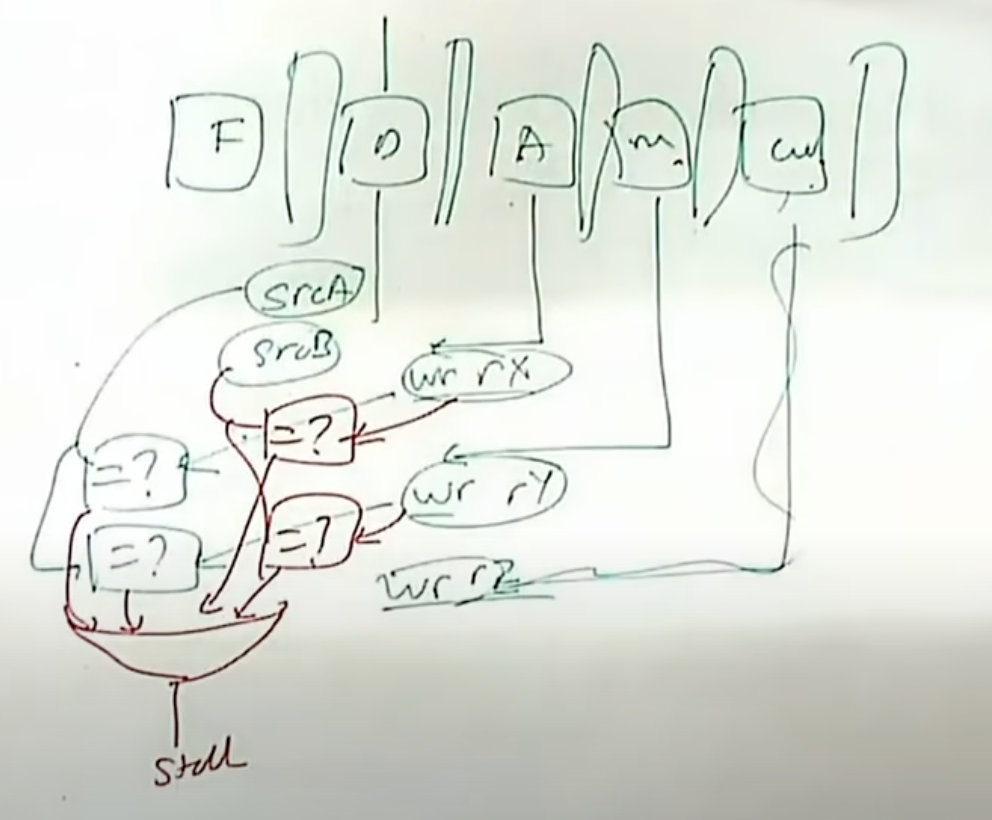 F D A m. cw
srcA
srcB
wr rX
=?
=?
wr rY
=?
=?
wr rZ
stall